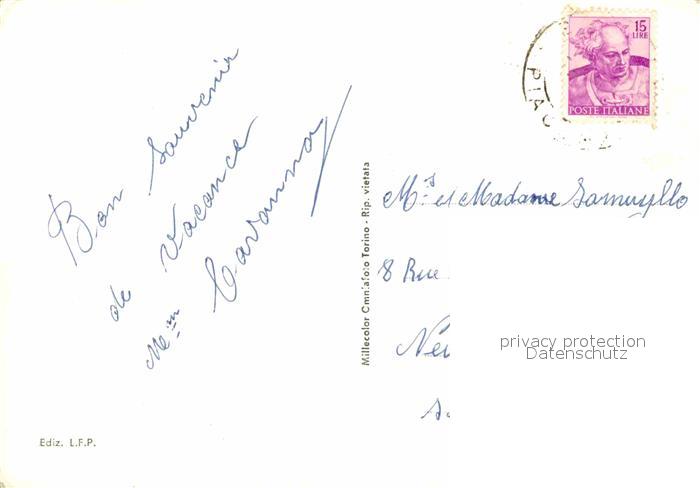 Bon Souvenir
de Vacance
Mᵐ Cavanna
Millecolor Omniafoto Torino - Rip. vietata
Ediz. L.F.P.
15
LIRE
POSTE ITALIANE
Mʳˢ et Madame Samuyllo
8 Rue
privacy protection
Datenschutz